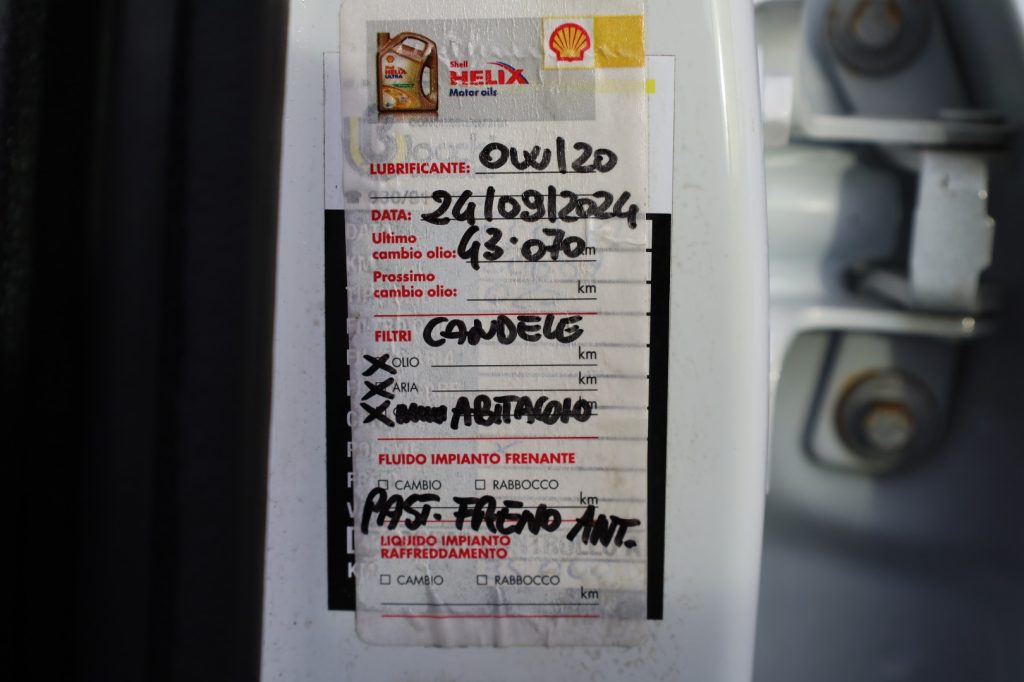 Shell
HELIX
Motor oils
Shell
HELIX
ULTRA
LUBRIFICANTE: 0W/20
DATA: 24/09/2024
Ultimo
cambio olio: 43.070 km
Prossimo
cambio olio: km
FILTRI CANDELE
X OLIO km
X ARIA km
X ABITACOLO
FLUIDO IMPIANTO FRENANTE
☐ CAMBIO ☐ RABBOCCO
km
PAST. FRENO ANT.
LIQUIDO IMPIANTO
RAFFREDDAMENTO
☐ CAMBIO ☐ RABBOCCO
km